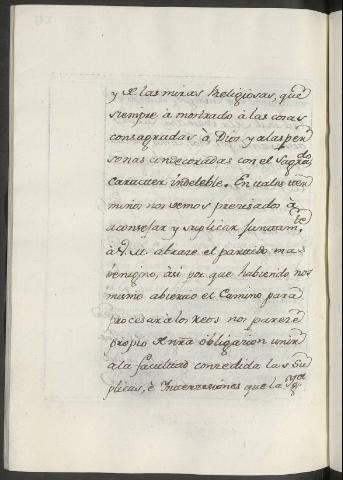 y de las miras Religiosas, que
siempre à mostrado à las cosas
consagradas à Dios y alas per
sonas condecoradas con el sagrado
caracter indeleble. En tales ter
minos, nos vemos precisados à
aconsejar y suplicar juntam.te
à V. M. abraze el partido mas
benigno, asi por que habiendo nos
mismo abierto el Camino para
procesar à los Reos nos parece
propio de nra obligacion unir
ala facultad concedida las Su
plicas, è Intercesiones que la Ygl.a